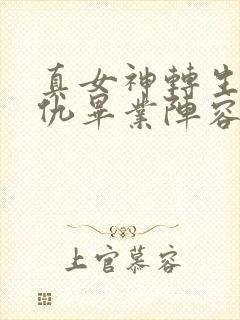 真女神轉生
仇畢業陣容
上官慕容